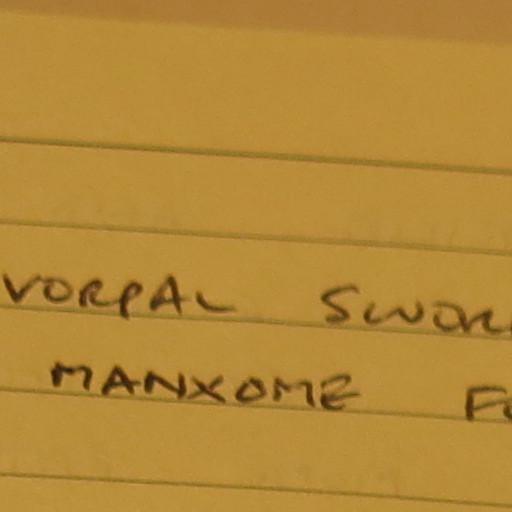 VORPAL SWOR
MANXOME FO